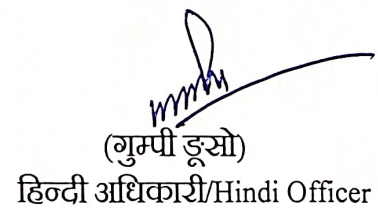 (गुम्पी ङूसो)
हिन्दी अधिकारी/Hindi Officer